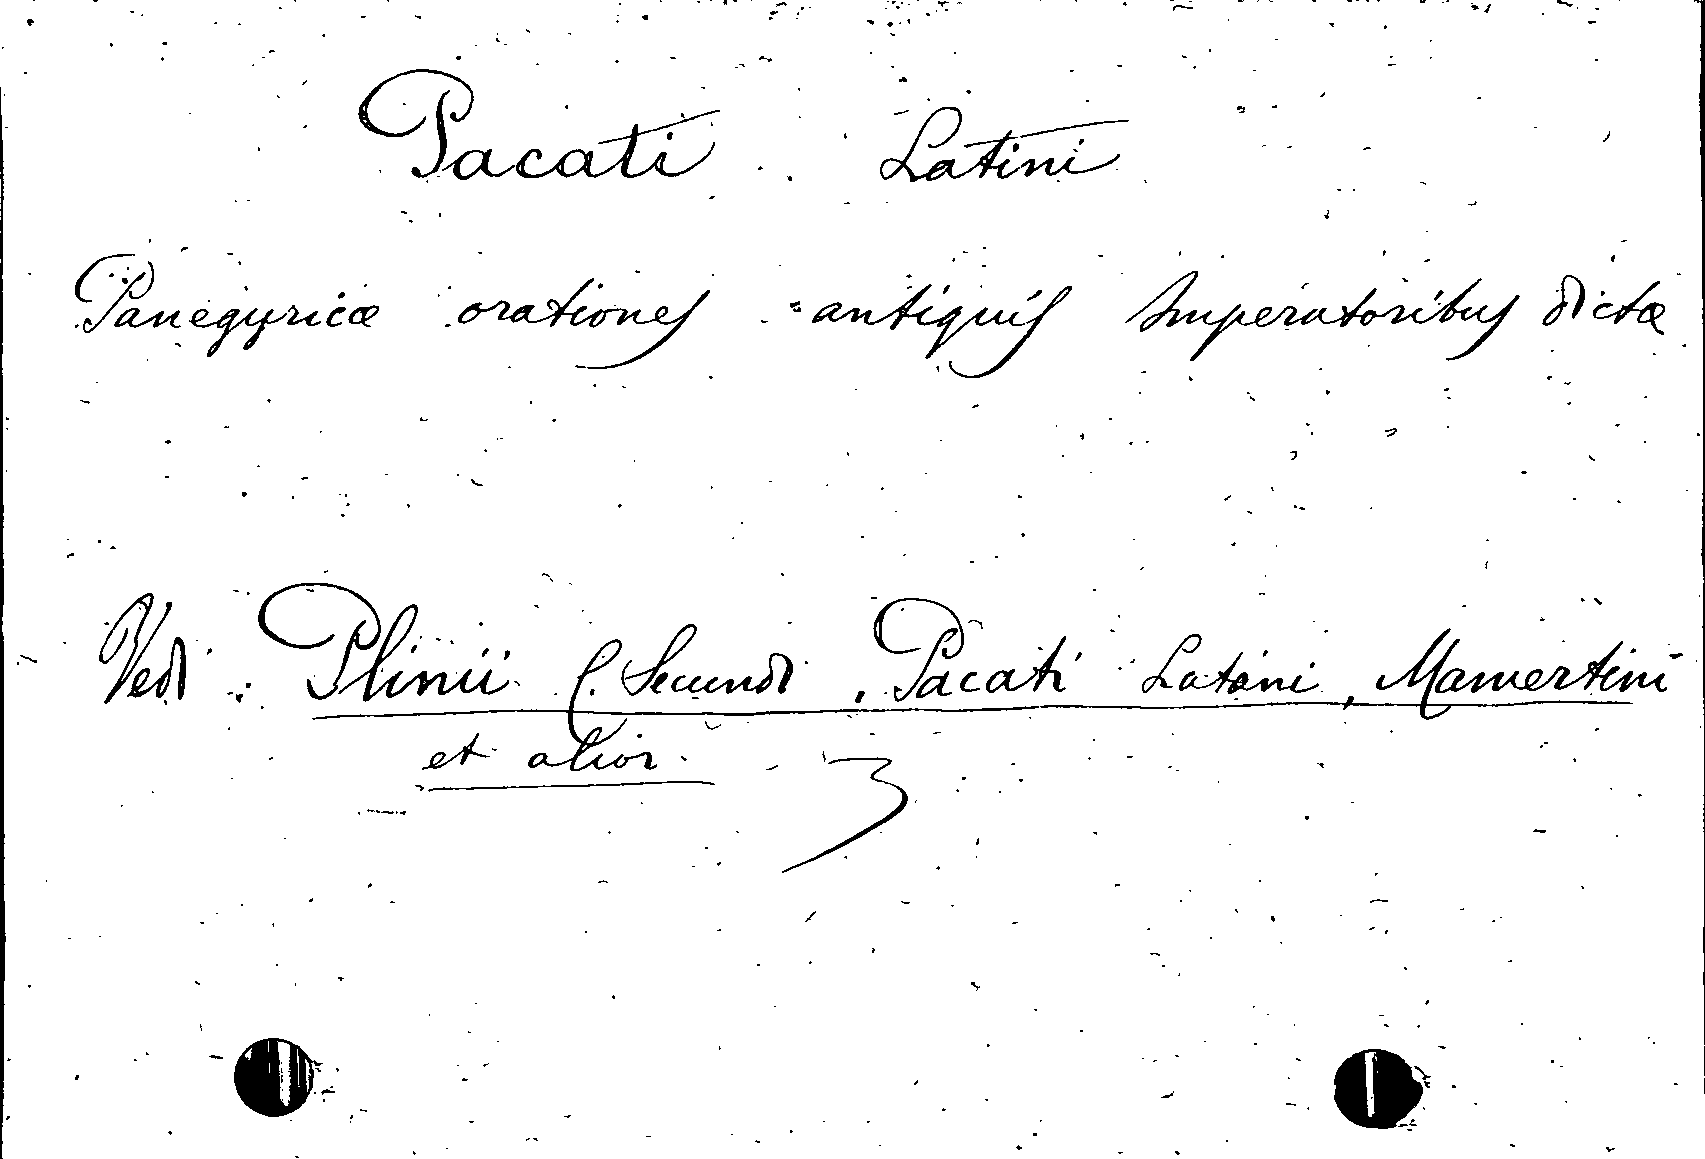 Pacati Latini
Panegyricæ orationes antiquis Imperatoribus dictæ
Vedi: Plinii C. Secundi, Pacati Latini, Mamertini
et alior.